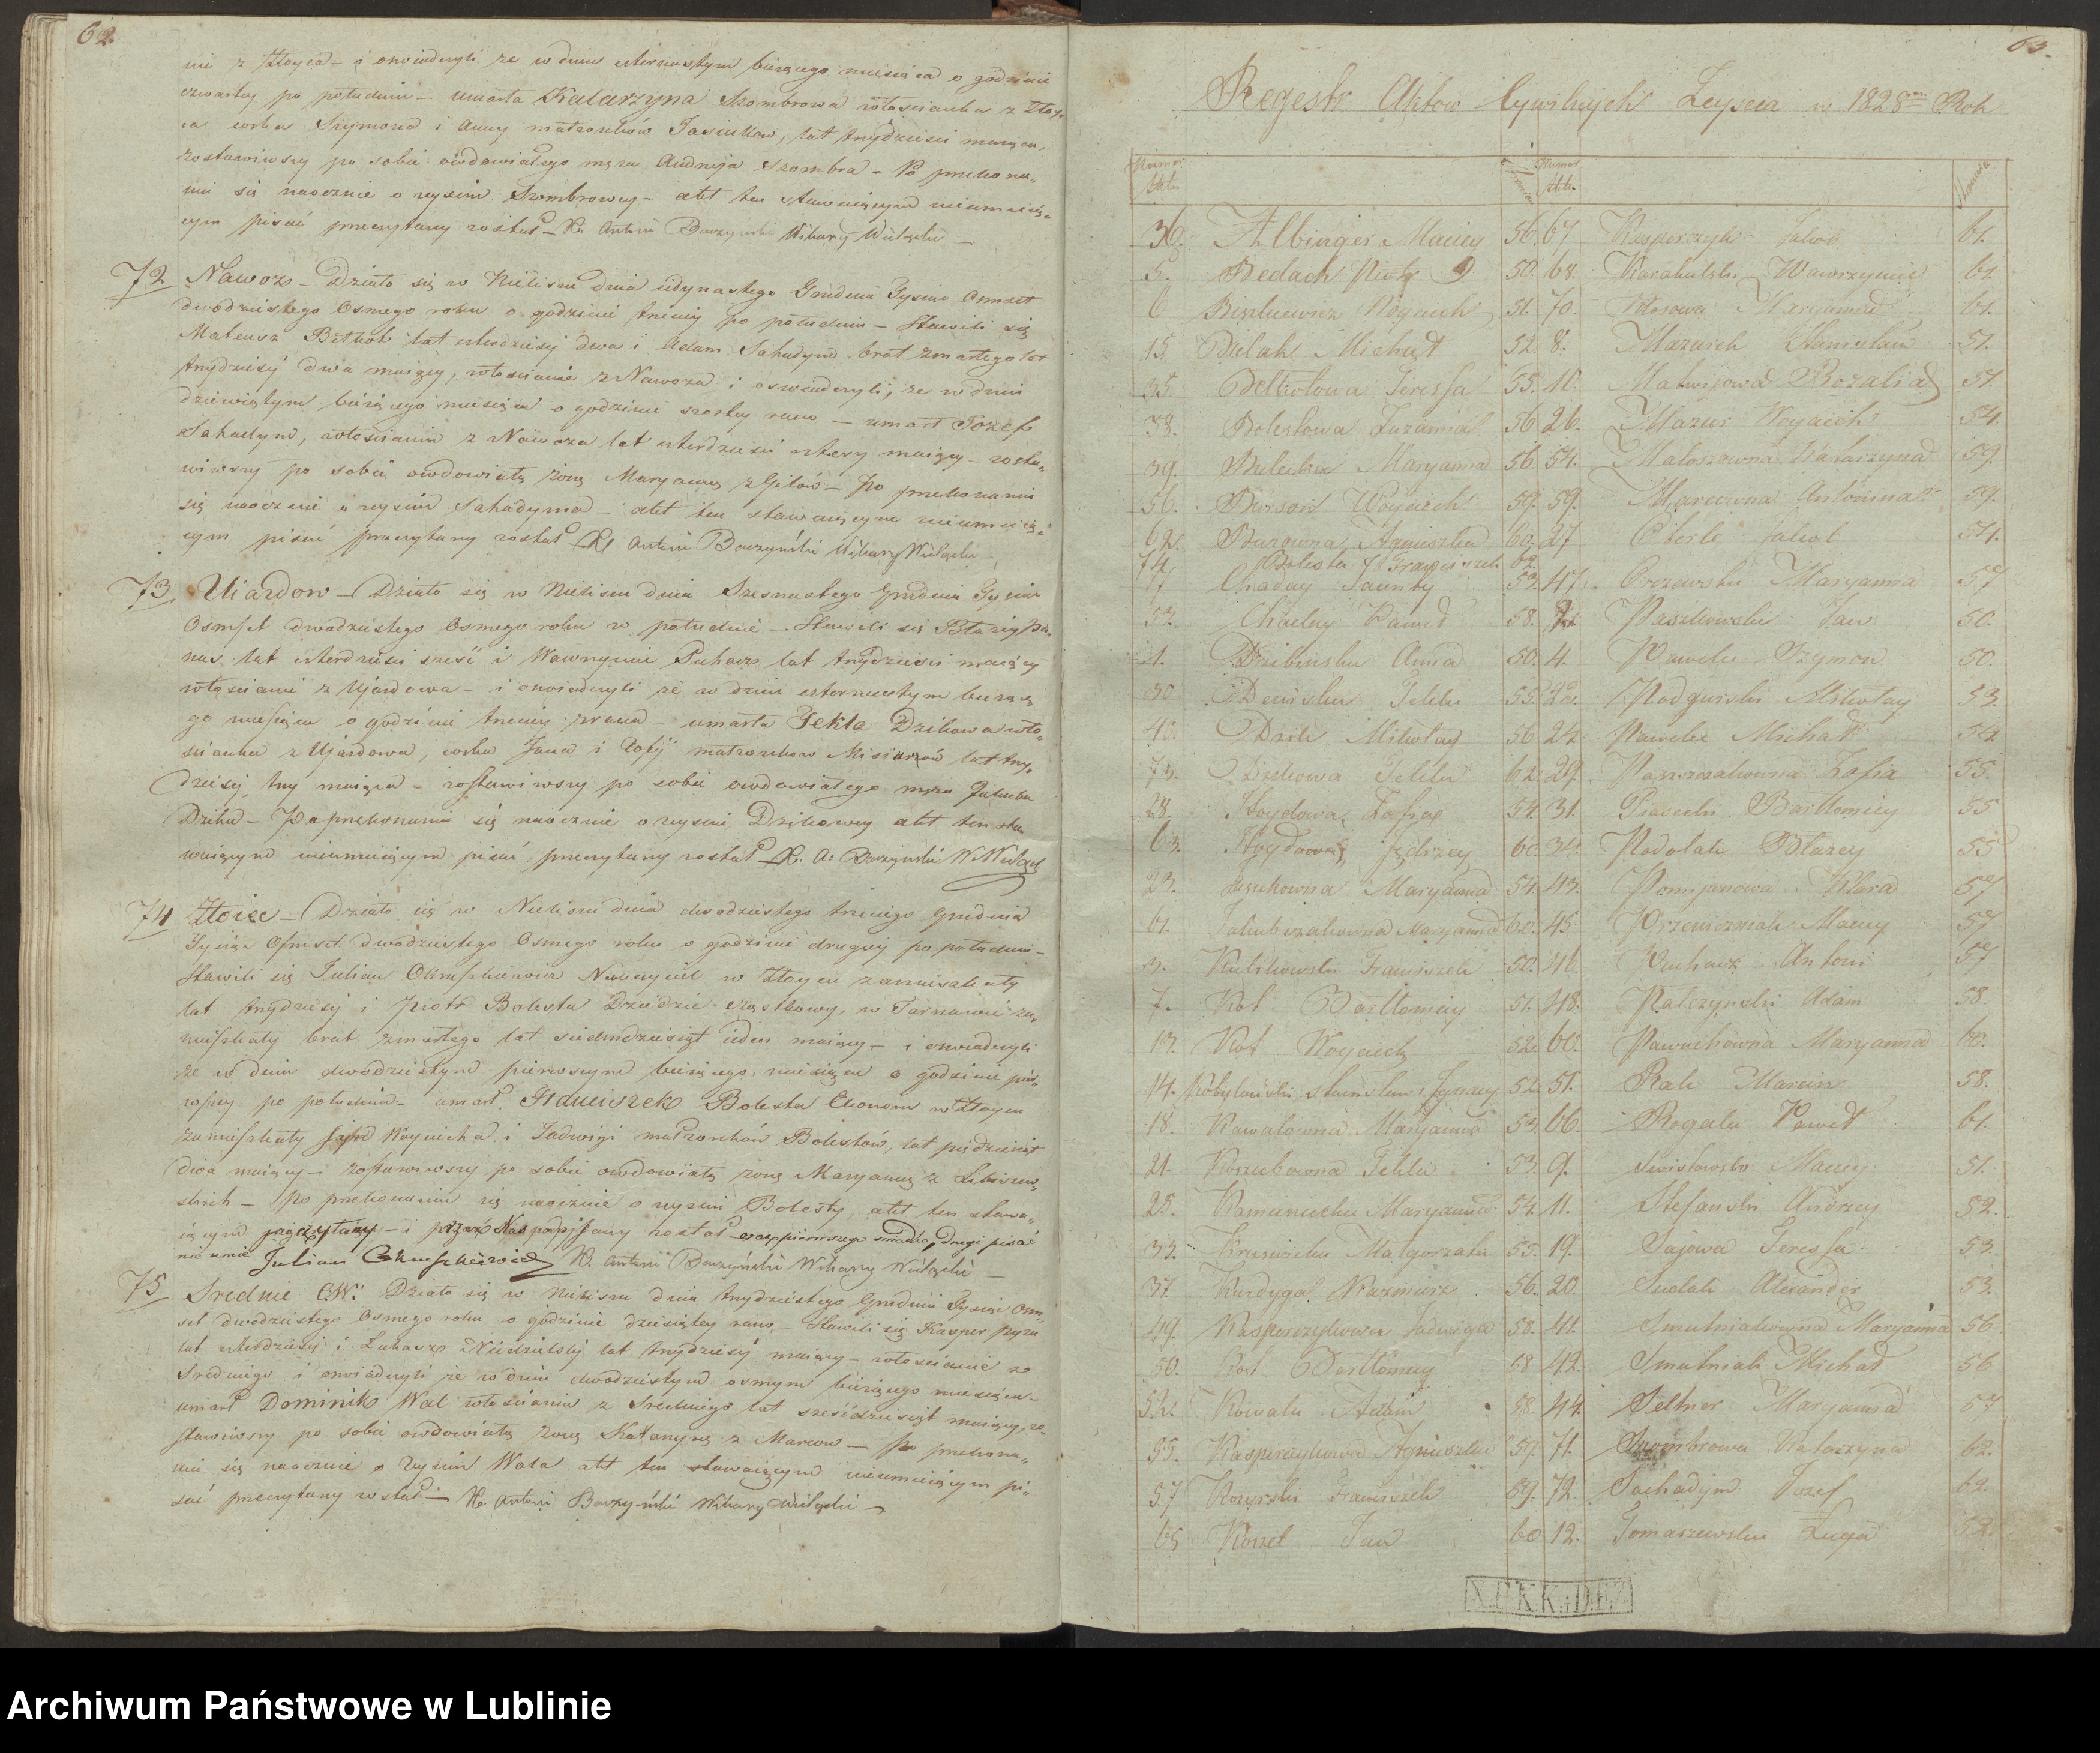 62.
ni z Złoyca – i oswiadczyli że w dniu czternastym bieżącego miesiąca o godzinie
czwartey po południu – umarła Katarzyna Szombrowa włościanka z Złoy,
ca corka Szymona i Anny małżonków Jasiukow, lat trzydzieści maiąca,
zostawiwszy po sobie owdowiałego męża Andrzeja Szombra – Po przekona„
niu się naocznie o zeyściu Szombrowey – akt ten stawaiącym nieumieią„
cym pisać przeczytany został – X. Antoni Boczyński Wikary Wielącki –
72 Nawoz – Działo się w Nieliszu dnia iedynastego Grudnia Tysiąc Osmset
dwudziestego Osmego roku o godzinie trzeciey po południu – Stawili się
Mateusz Bełkot lat czterdzieści dwa i Adam Sahadyn brat zmarłego lat
trzydzieści dwa maiący, włościanie z Nawoza i oswiadczyli, że w dniu
dziewiątym bieżącego miesiąca o godzinie szostey rano – umarł Jozef
Sahadyn, włościanin z Nawoza lat czterdzieści cztery maiący – zosta„
wiwszy po sobie owdowiałą żonę Maryannę z Gilów – Po przekonaniu
się naocznie o zeyściu Sahadyna – akt ten stawaiącym nieumieią„
cym pisać przeczytany został X. Antoni Boczyński Wikary Wielącki –
73 Uiazdow – Działo się w Nieliszu dnia Szesnastego Grudnia Tysiąc
Osmset dwudziestego Osmego roku w południe – Stawili się Błażey Pa„
nas lat czterdzieści sześć i Wawrzyniec Puhacz lat trzydzieści maiący
włościanie z Ujazdowa – i oswiadczyli że w dniu czternastym bieżące„
go miesiąca o godzinie trzeciey z rana – umarła Tekla Dzikowa wło„
scianka z Ujazdowa, corka Jana i Zofij małzonkow Misiarzów lat trzy„
dzieści trzy maiąca – zostawiwszy po sobie owdowiałego męża Jakuba
Dzika – Po przekonaniu się naocznie o zeyściu Dzikowey akt ten sta„
waiącym nieumieiącym pisać przeczytany został X. A. Boczyński W. Wielącki
74 Złoiec – Działo się w Nieliszu dnia dwudziestego trzeciego Grudnia
Tysiąc Osmset dwudziestego Osmego roku o godzinie drugiey po południu –
Stawili się Julian Okruszkiewicz Nauczyciel w Złoycu zamieszkały
lat trzydzieści i Piotr Bolesta Dziedzic cząstkowy, w Tarnawie za„
mieszkały brat zmarłego lat siedmdziesiąt ieden maiący – i oswiadczyli
że w dniu dwudziestym pierwszym bieżącego miesiąca o godzinie pier„
wszey po południu – umarł Franciszek Bolesta Ekonom w Złoycu
zamieszkały syn Woyciecha i Jadwigi małżonków Bolestów, lat pięćdziesiąt
dwa maiący – zostawiwszy po sobie owdowiałą żonę Maryannę z Libiszew„
skich – Po przekonaniu się naocznie o zeyściu Bolesty, akt ten stawa„
iącym przeczytany – i przez Nas podpisany został oraz pierwszego swiadka, drugi pisać
nie umie Julian Okruszkiewicz X. Antoni Boczyński Wikary Wielącki –
75 Srednie CW: Działo się w Nieliszu dnia trzydziestego Grudnia Tysiąc Osm„
set dwudziestego Osmego roku o godzinie dziesiątey rano – Stawili się Kasper Pyza
lat czterdzieści i Łukasz Niedzielski lat trzydzieści maiący – włościanie ze
Sredniego i oswiadczyli że w dniu dwudziestym osmym bieżącego miesiąca –
umarł Dominik Wal włościanin z Sredniego lat sześćdziesiąt maiący, zo„
stawiwszy po sobie owdowiałą żonę Katarzynę z Marcow – Po przekona„
niu się naocznie o zeyściu Wala akt ten stawaiącym nieumieiącym pi„
sać przeczytany został – X. Antoni Boczyński Wikary Wielącki –
63.
Regestr Aktow Cywilnych Zeyscia w 1828 Rok
Numer Aktu Stronica Numer Aktu Stronica
36. Albinger Maciey 56. 67 Kasperczyk Jakob 61.
5. Bedach Piotr 50. 68. Karakulski Wawrzyniec 61.
6 Biszkiewicz Woyciech 51. 70. Maryanna 61.
15 Bielak Michał 52. 8. Mazurek Stanisław 51.
35 Bełkotowa Teressa 55. 16. Matwijowa Rozalia 51.
38. Bolestowa Zuzanna 56 26. Mazur Woyciech 54.
39. Bielecka Maryanna 56. 54. Małoszowna Katarzyna 59.
56. Burson Woyciech 59. 59. Marcowna Antonina 59.
62. Buzowna Agnieszka 60. 27 Oberle Jakob 54.
74. Bolesta Franciszek 62.
17 Chaday Jacenty 53. 47. Orzewska Maryanna 57
52. Chacley Paweł 58. 2. Paszkowski Jan 50.
1. Dzibińska Anna 50. 4. Pawelec Szymon 50.
30 Deniska Tekla 55. 22. Podgurski Mikołay 53.
40. Dzik Mikołay 56 24 Pawelec Michał 54.
73. Dzikowa Tekla 62. 29. Zofia 55.
28. Hoydowa Zofia 54. 31. Piasecki Bartłomiey 55
63. Hoyda Jędrzey 60. 34. Podolak Błażey 55
23. Maryanna 54. 43. Pomijanowa Klara 57
61. Jakubczakowna Maryanna 60. 45 Maciey 57
3. Kulikowski Franciszek 50. 46. Puchacz Antoni 57
7. Kot Bartłomiey 51. 48. Palczyński Adam 58.
13. Kot Woyciech 52. 60. Pawuchowna Maryanna 60.
14. Kobylański Stanisław Ignacy 52. 51. Rak Marcin 58.
18. Kowalowna Maryanna 53. 66. Rogala Paweł 61.
21. Koszubowna Tekla 53. 9. Swistowski Maciey 51.
25. Kamieniecka Maryanna 54. 11. Stefański Andrzey 52.
33. Krusicka Małgorzata 55. 19. Sajowa Teressa 53.
37. Kurdyga Kazimierz 56. 20. Alexander 53.
49. Kasperczykowa Jadwiga 58. 41. Smutniakowna Maryanna 56
50. Kot Bartłomiey 58 42. Smutniak Michał 56
52. Kowale 58. 44. Seltner Maryanna 57
55. Kasperczykowa Agnieszka 59. 71. Szombrowa Katarzyna 62.
57 Kozyrski Franciszek 59. 72. Sachadyn Jozef 62.
65 Kozieł Jan 60 12. Tomaszewska Łucya 52.
Archiwum Państwowe w Lublinie